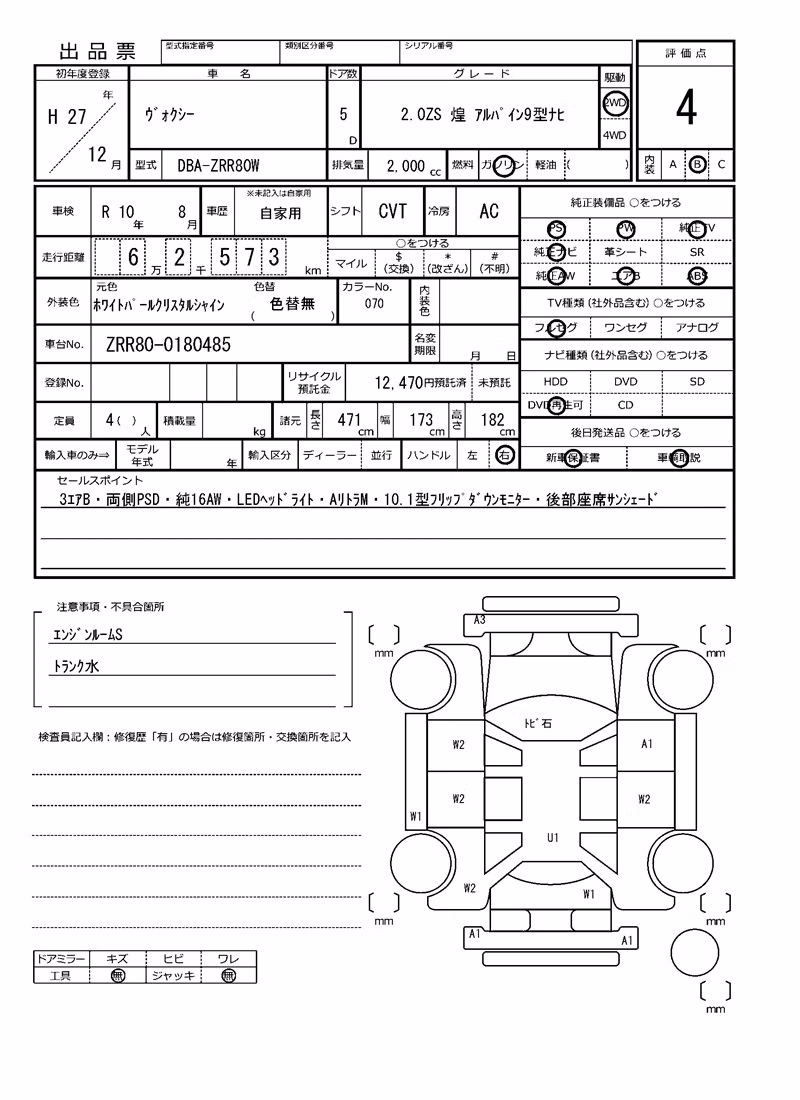 出品票
型式指定番号 類別区分番号 シリアル番号
評価点
4
内装 A B C
初年度登録 車名 ドア数 グレード 駆動
H 27 年 12 月
ヴォクシー
5 D
2.0ZS 煌 アルパイン9型ナビ
2WD
4WD
型式 DBA-ZRR80W 排気量 2,000 cc 燃料 ガソリン 軽油 ( )
車検 R 10 年 8 月 車歴 ※未記入は自家用 自家用 シフト CVT 冷房 AC
走行距離 6 万 2 千 5 7 3 km
○をつける
マイル $(交換) *(改ざん) #(不明)
外装色 元色 ホワイトパールクリスタルシャイン 色替 ( 色替無 ) カラーNo. 070 内装色
車台No. ZRR80-0180485 名変期限 月 日
登録No. リサイクル預託金 12,470円預託済 未預託
定員 4( )人 積載量 kg 諸元 長さ 471cm 幅 173cm 高さ 182cm
輸入車のみ⇒ モデル年式 年 輸入区分 ディーラー 並行 ハンドル 左 右
純正装備品 ○をつける
PS PW 純正TV
純正ナビ 革シート SR
純正AW エアB ABS
TV種類(社外品含む)○をつける
フルセグ ワンセグ アナログ
ナビ種類(社外品含む)○をつける
HDD DVD SD
DVD再生可 CD
後日発送品 ○をつける
新車保証書 車輌取説
セールスポイント
3エアB・両側PSD・純16AW・LEDヘッドライト・AリトラM・10.1型フリップダウンモニター・後部座席サンシェード
注意事項・不具合箇所
エンジンルームS
トランク水
検査員記入欄:修復歴「有」の場合は修復箇所・交換箇所を記入
ドアミラー キズ ヒビ ワレ
工具 無 ジャッキ 無
A3
mm
mm
トビ石
W2
A1
W2
W2
W1
U1
W2
W1
mm
mm
A1
A1
mm